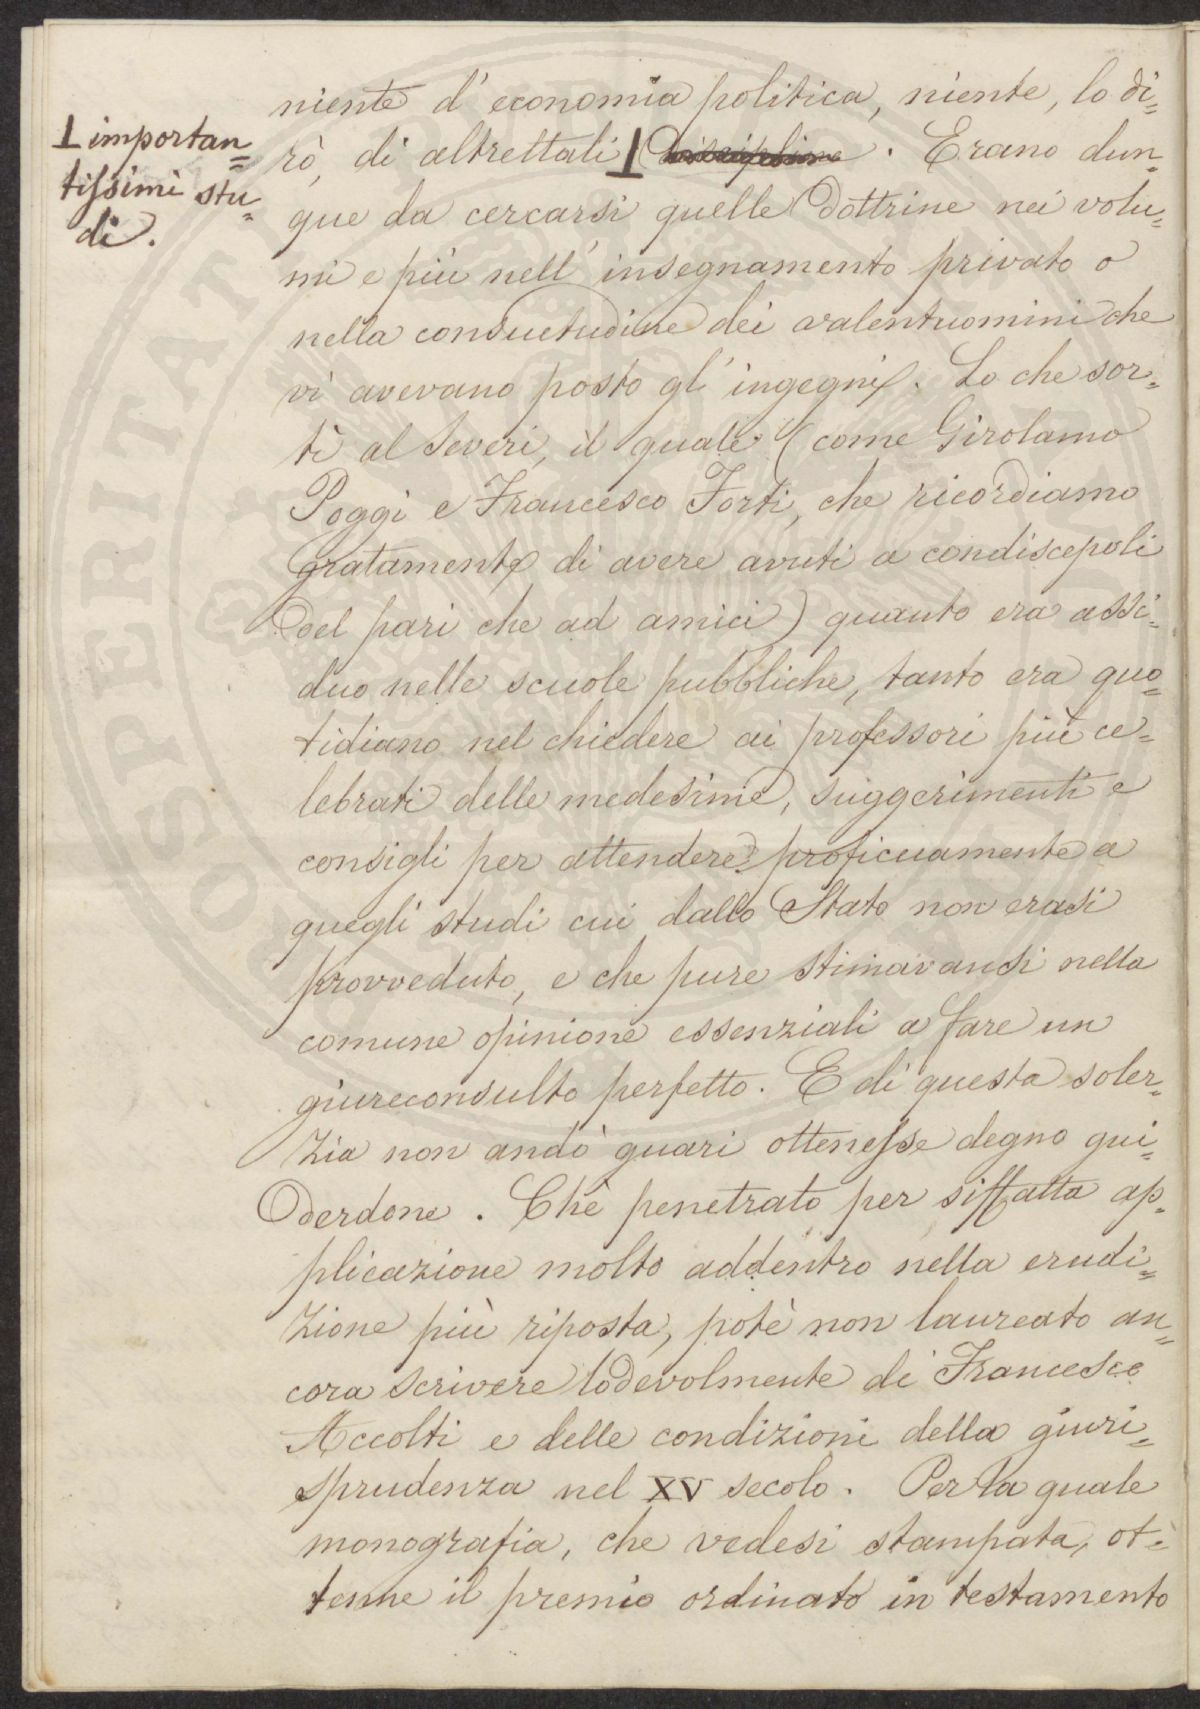 niente d'economia politica, niente, lo di=
rò, di altrettali ⊥ discipline. Erano dun=
que da cercarsi quelle dottrine nei volu=
mi e più nell'insegnamento privato o
nella consuetudine dei valentuomini che
vi avevano posto gl'ingegni. Lo che sor=
tì al Severi, il quale (come Girolamo
Poggi e Francesco Forti, che ricordiamo
gratamente di avere avuti a condiscepoli
del pari che ad amici) quanto era assi=
duo nelle scuole pubbliche, tanto era quo=
tidiano nel chiedere ai professori più ce=
lebrati delle medesime, suggerimenti e
consigli per attendere proficuamente a
quegli studi cui dallo Stato non erasi
provveduto, e che pure stimavansi nella
comune opinione essenziali a fare un
giureconsulto perfetto. E di questa soler=
zia non andò guari ottenesse degno gui=
derdone. Chè penetrato per siffatta ap=
plicazione molto addentro nella erudi=
zione più riposta, potè non laureato an=
cora scrivere lodevolmente di Francesco
Accolti e delle condizioni della giuri=
sprudenza nel XV secolo. Per la quale
monografia, che vedesi stampata, ot=
tenne il premio ordinato in testamento
⊥ importan=
tissimi stu=
di.
PROSPERITATI